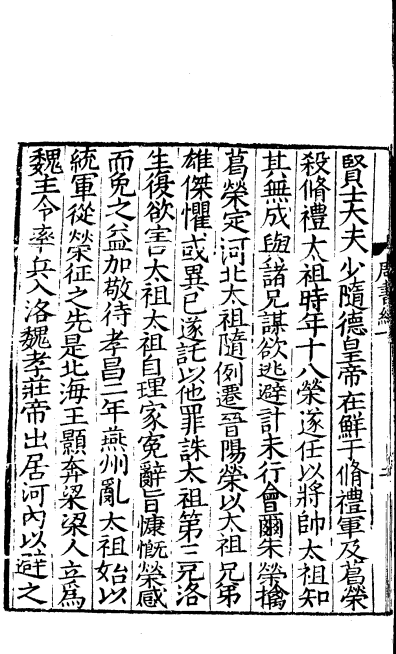 賢士大夫少隨德皇帝在鮮于脩禮軍及葛榮
殺脩禮太祖時年十八榮遂任以將帥太祖知
其無成與諸兄謀欲逃避計未行會爾朱榮擒
葛榮定河北太祖隨例遷晉陽榮以太祖兄弟
雄傑懼或異己遂託以他罪誅太祖第三兄洛
生復欲害太祖太祖自理家寃辭旨慷慨榮感
而免之益加敬待孝昌二年燕州亂太祖始以
統軍從榮征之先是北海王顥奔梁梁人立爲
魏主令率兵入洛魏孝莊帝出居河內以避之
周書紀一
二